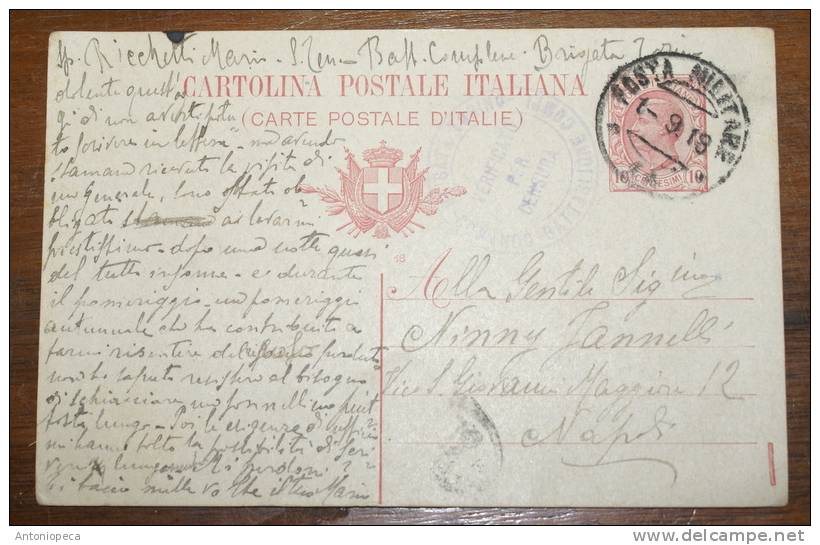 Sp. Ricchetti Mario - S. Ten - Batt. Complem. Brigata
CARTOLINA POSTALE ITALIANA
(CARTE POSTALE D'ITALIE)
POSTA MILITARE
1-9.18
10 CENTESIMI 10
VERIFICATO
P. R.
CENSURA
18
dolente quest'
gi di non
to scrivere in lettera - ma avendo
stamane ricevuta la visita di
un Generale, sono stato ob
bligato ad alzarmi
prestissimo - dopo una notte quasi
del tutto insonne - e durante
il pomeriggio - un pomeriggio
autunnale che ha contribuito a
farmi risentire del sonno perduto
non ho saputo resistere al bisogno
di schiacciare un sonnellino piut
tosto lungo - Poi le esigenze di
mi hanno tolto la possibilità di scri
Mi perdoni?
Ti bacio mille volte il tuo Mario
Alla Gentile Sig.ina
Ninny Jannelli
Vico S. Giovanni Maggiore 12
Napoli
Antoniopeca
delcampe.net